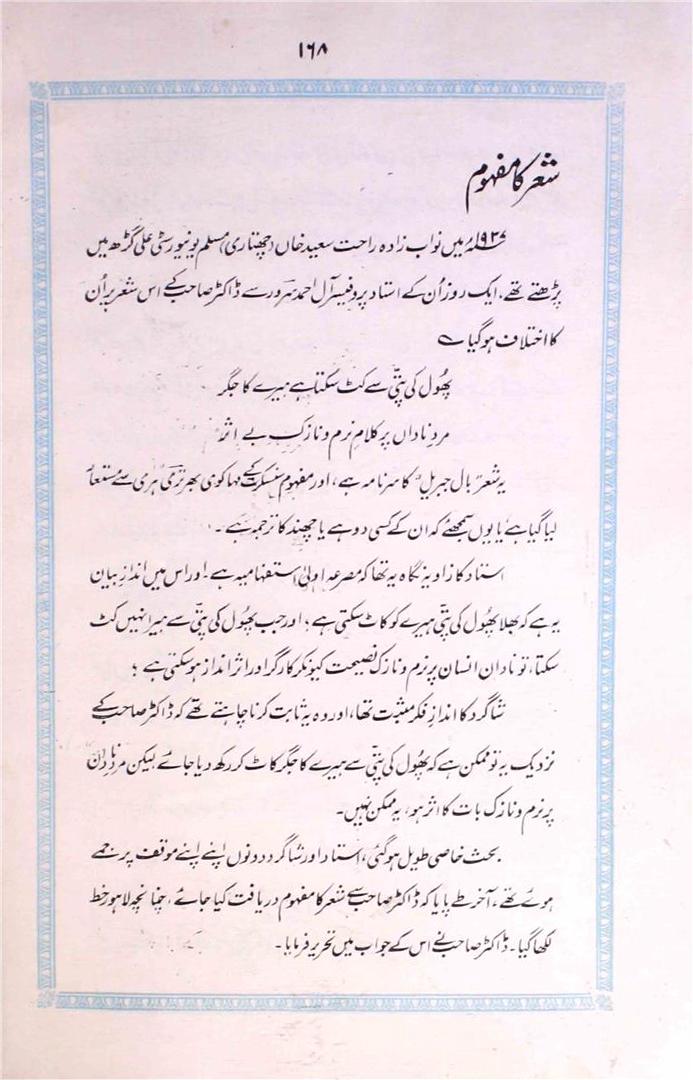 ۱۶۸
شعر کا مفہوم
۱۹۳۷ء میں نواب زادہ راحت سعید خاں (چھتاری) مسلم یونیورسٹی علی گڑھ میں
پڑھتے تھے، ایک روز اُن کے استاد پروفیسر آل احمد سرور سے ڈاکٹر صاحب کے اس شعر پر اُن
کا اختلاف ہو گیا ؎
پھول کی پتی سے کٹ سکتا ہے ہیرے کا جگر
مردِ ناداں پر کلامِ نرم و نازک بے اثر
یہ شعر "بالِ جبریل" کا سرنامہ ہے، اور مفہوم سنسکرت کے مہا کوی بھرتری ہری سے مستعار
لیا گیا ہے یا یوں سمجھئے کہ ان کے کسی دوہے یا چھند کا ترجمہ ہے۔
استاد کا زاویہ نگاہ یہ تھا کہ مصرعہ اولیٰ استفہامیہ ہے۔ اور اس میں اندازِ بیان
یہ ہے کہ بھلا پھول کی پتی ہیرے کو کاٹ سکتی ہے؟ اور جب پھول کی پتی سے ہیرا نہیں کٹ
سکتا، تو نادان انسان پر نرم و نازک نصیحت کیونکر کارگر اور اثر انداز ہو سکتی ہے؟
شاگرد کا اندازِ فکر مثبت تھا، اور وہ یہ ثابت کرنا چاہتے تھے کہ ڈاکٹر صاحب کے
نزدیک یہ تو ممکن ہے کہ پھول کی پتی سے ہیرے کا جگر کاٹ کر رکھ دیا جائے لیکن مردِ نادان
پر نرم و نازک بات کا اثر ہو، یہ ممکن نہیں۔
بحث خاصی طویل ہو گئی، استاد اور شاگرد دونوں اپنے اپنے موقف پر جمے
ہوئے تھے، آخر طے پایا کہ ڈاکٹر صاحب سے شعر کا مفہوم دریافت کیا جائے، چنانچہ لاہور خط
لکھا گیا۔ ڈاکٹر صاحب نے اس کے جواب میں تحریر فرمایا۔